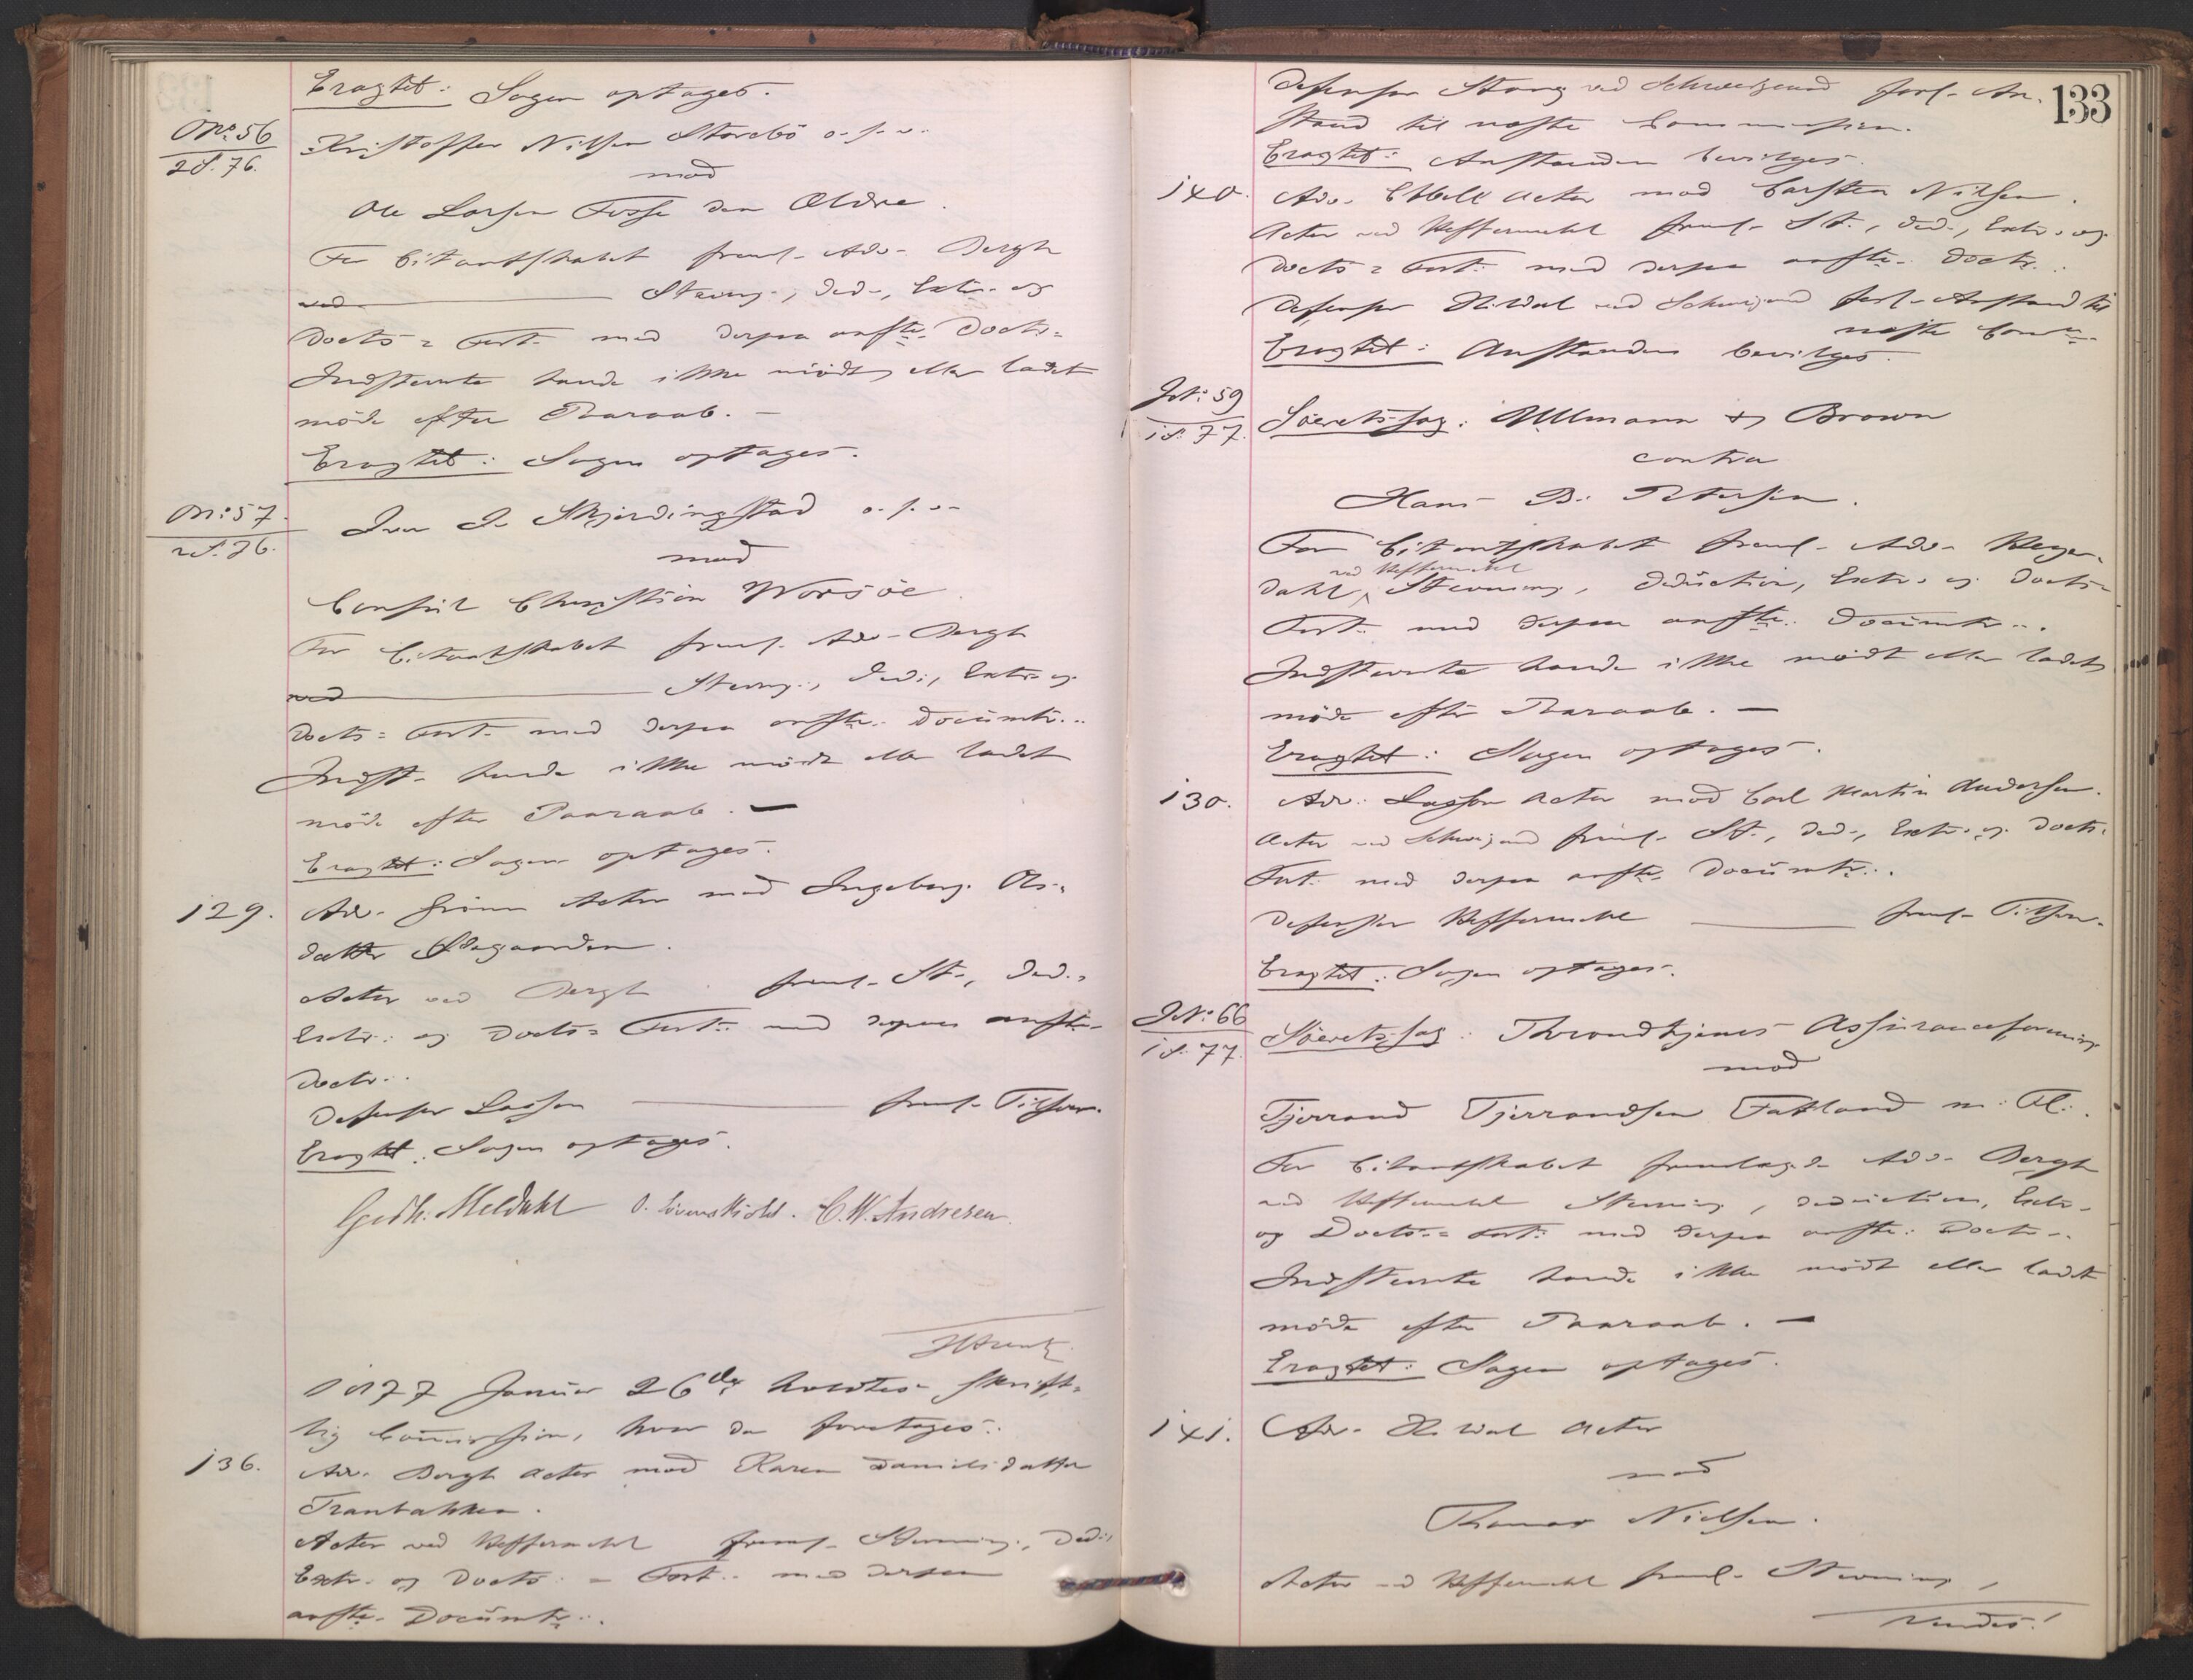 Eragtet: Sagen optages.
No 56
2 S. 76.
Kristoffer Nilsen Storebö o. s. v.
mod
Ole Larsen Fosse den Ældre.
For Citantskabet freml. Adv. Bergh
ved Stevng., Ded., Extr. og
Docts = Fort. med derpaa anfte. Doctr.
Indstevnte havde ikke mödt eller ladet
möde efter Paaraab. —
Eragtet: Sagen optages.
No 57.
2 S. 76.
Iver J. Skjerdingstad o. s. v.
mod
Consul Christian Worsöe.
For Citantskabet freml. Adv. Bergh
ved Stevng., Ded., Extr. og
Docts = Fort. med derpaa anfte. Documtr.
Indst. havde ikke mödt eller ladet
möde efter Paaraab. —
Eragtet: Sagen optages.
129.
Adv. Actor mod Ingeborg Ols-
datter
Actor ved Bergh freml. St., Ded.,
Extr. og Docts = Fort. med derpaa anfte.
Doctr.
Defensor Lasson freml. Tilsvar.
Eragtet: Sagen optages.
Meldahl O. Lövenskiold. C. W. Andresen.
1877 Januar 26de holdtes skrift-
lig Commission, hvor da foretoges:
136.
Adv. Bergh Actor mod Karen Danielsdatter
Tranbakken.
Actor ved Heffermehl freml. Stevning, Ded.,
Extr. og Docts. = Fort. med derpaa
anfte. Documtr.
133
Defensor Stang ved Schweigaard forl. An-
stand til næste Commission.
Eragtet: Anstanden bevilges.
140.
Adv. Actor mod Carsten Nilsen.
Actor ved Heffermehl freml. St., Ded., Extr. og
Docts = Fort. med derpaa anfte. Doctr.
Defensor ved Schweigaard forl. Anstand til
næste Comm.
Eragtet: Anstanden bevilges.
J. No 59
1 S. 77.
Söeretssag: Ullmann & Brown
contra
Hans B. Petersen.
For Citantskabet freml. Adv. Heyer-
dahl ved Heffermehl Stevning, Deduction, Extr. og Docts
Fort. med derpaa anfte. Documtr.
Indstevnte havde ikke mödt eller ladet
möde efter Paaraab. —
Eragtet: Sagen optages.
130.
Adv. Lasson Actor mod Carl Martin Andersen.
Actor ved Schweigaard freml. St., Ded., Extr. og Docts.
Fort. med derpaa anfte. Documtr.
Defensor Heffermehl freml. Tilsvar.
Eragtet: Sagen optages.
J. No 66
1 S. 77.
Söeretssag: Throndhjems Assuranceforening
mod
Tjerrand Tjerrandsen Fatland m. Fl.
For Citantskabet fremlagde Adv. Bergh
ved Heffermehl Stevning, Deduction, Extr.
og Docts. = Fort. med derpaa anfte. Doctr.
Indstevnte havde ikke mödt eller ladet
möde efter Paaraab. —
Eragtet: Sagen optages.
141.
Adv. Actor
mod
Thomas Nielsen.
Actor ved Heffermehl freml. Stevning,
Vendes!